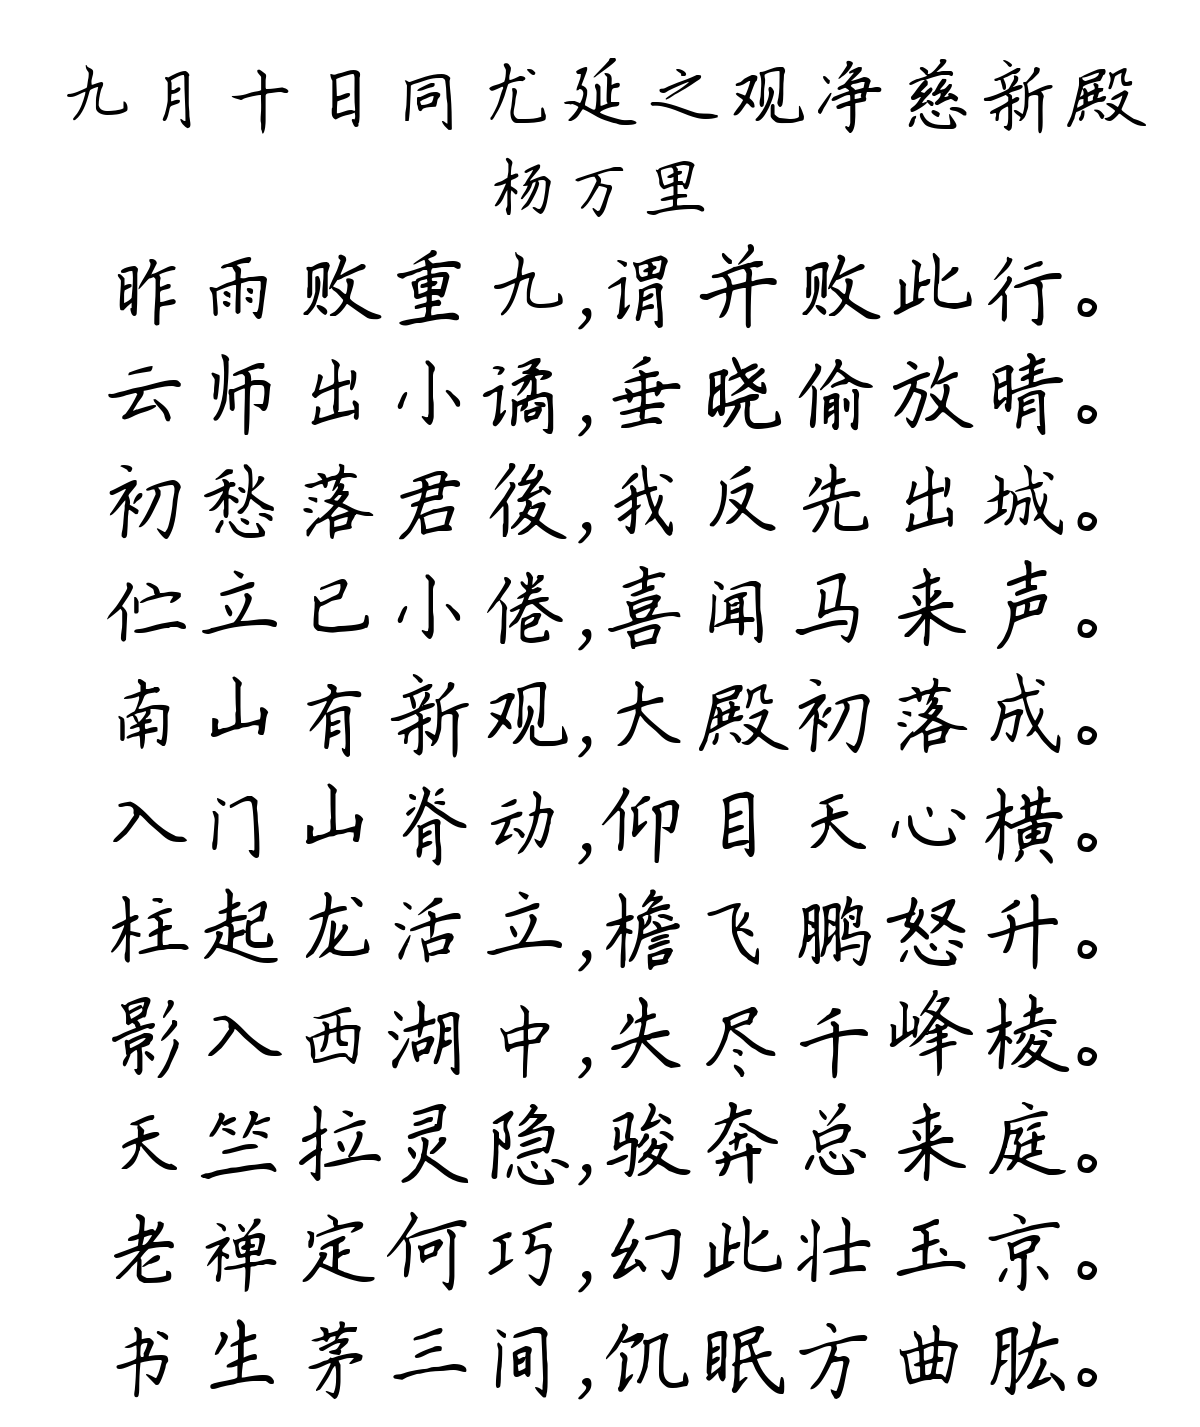 九月十日同尤延之观净慈新殿
杨万里
昨雨败重九,谓并败此行。
云师出小谲,垂晓偷放晴。
初愁落君後,我反先出城。
伫立已小倦,喜闻马来声。
南山有新观,大殿初落成。
入门山脊动,仰目天心横。
柱起龙活立,檐飞鹏怒升。
影入西湖中,失尽千峰棱。
天竺拉灵隐,骏奔总来庭。
老禅定何巧,幻此壮玉京。
书生茅三间,饥眠方曲肱。